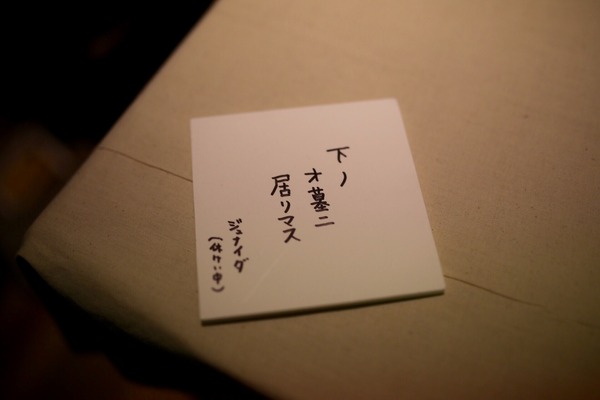 下ノ
オ墓ニ
居リマス
ジュナイダ
(休けい中)